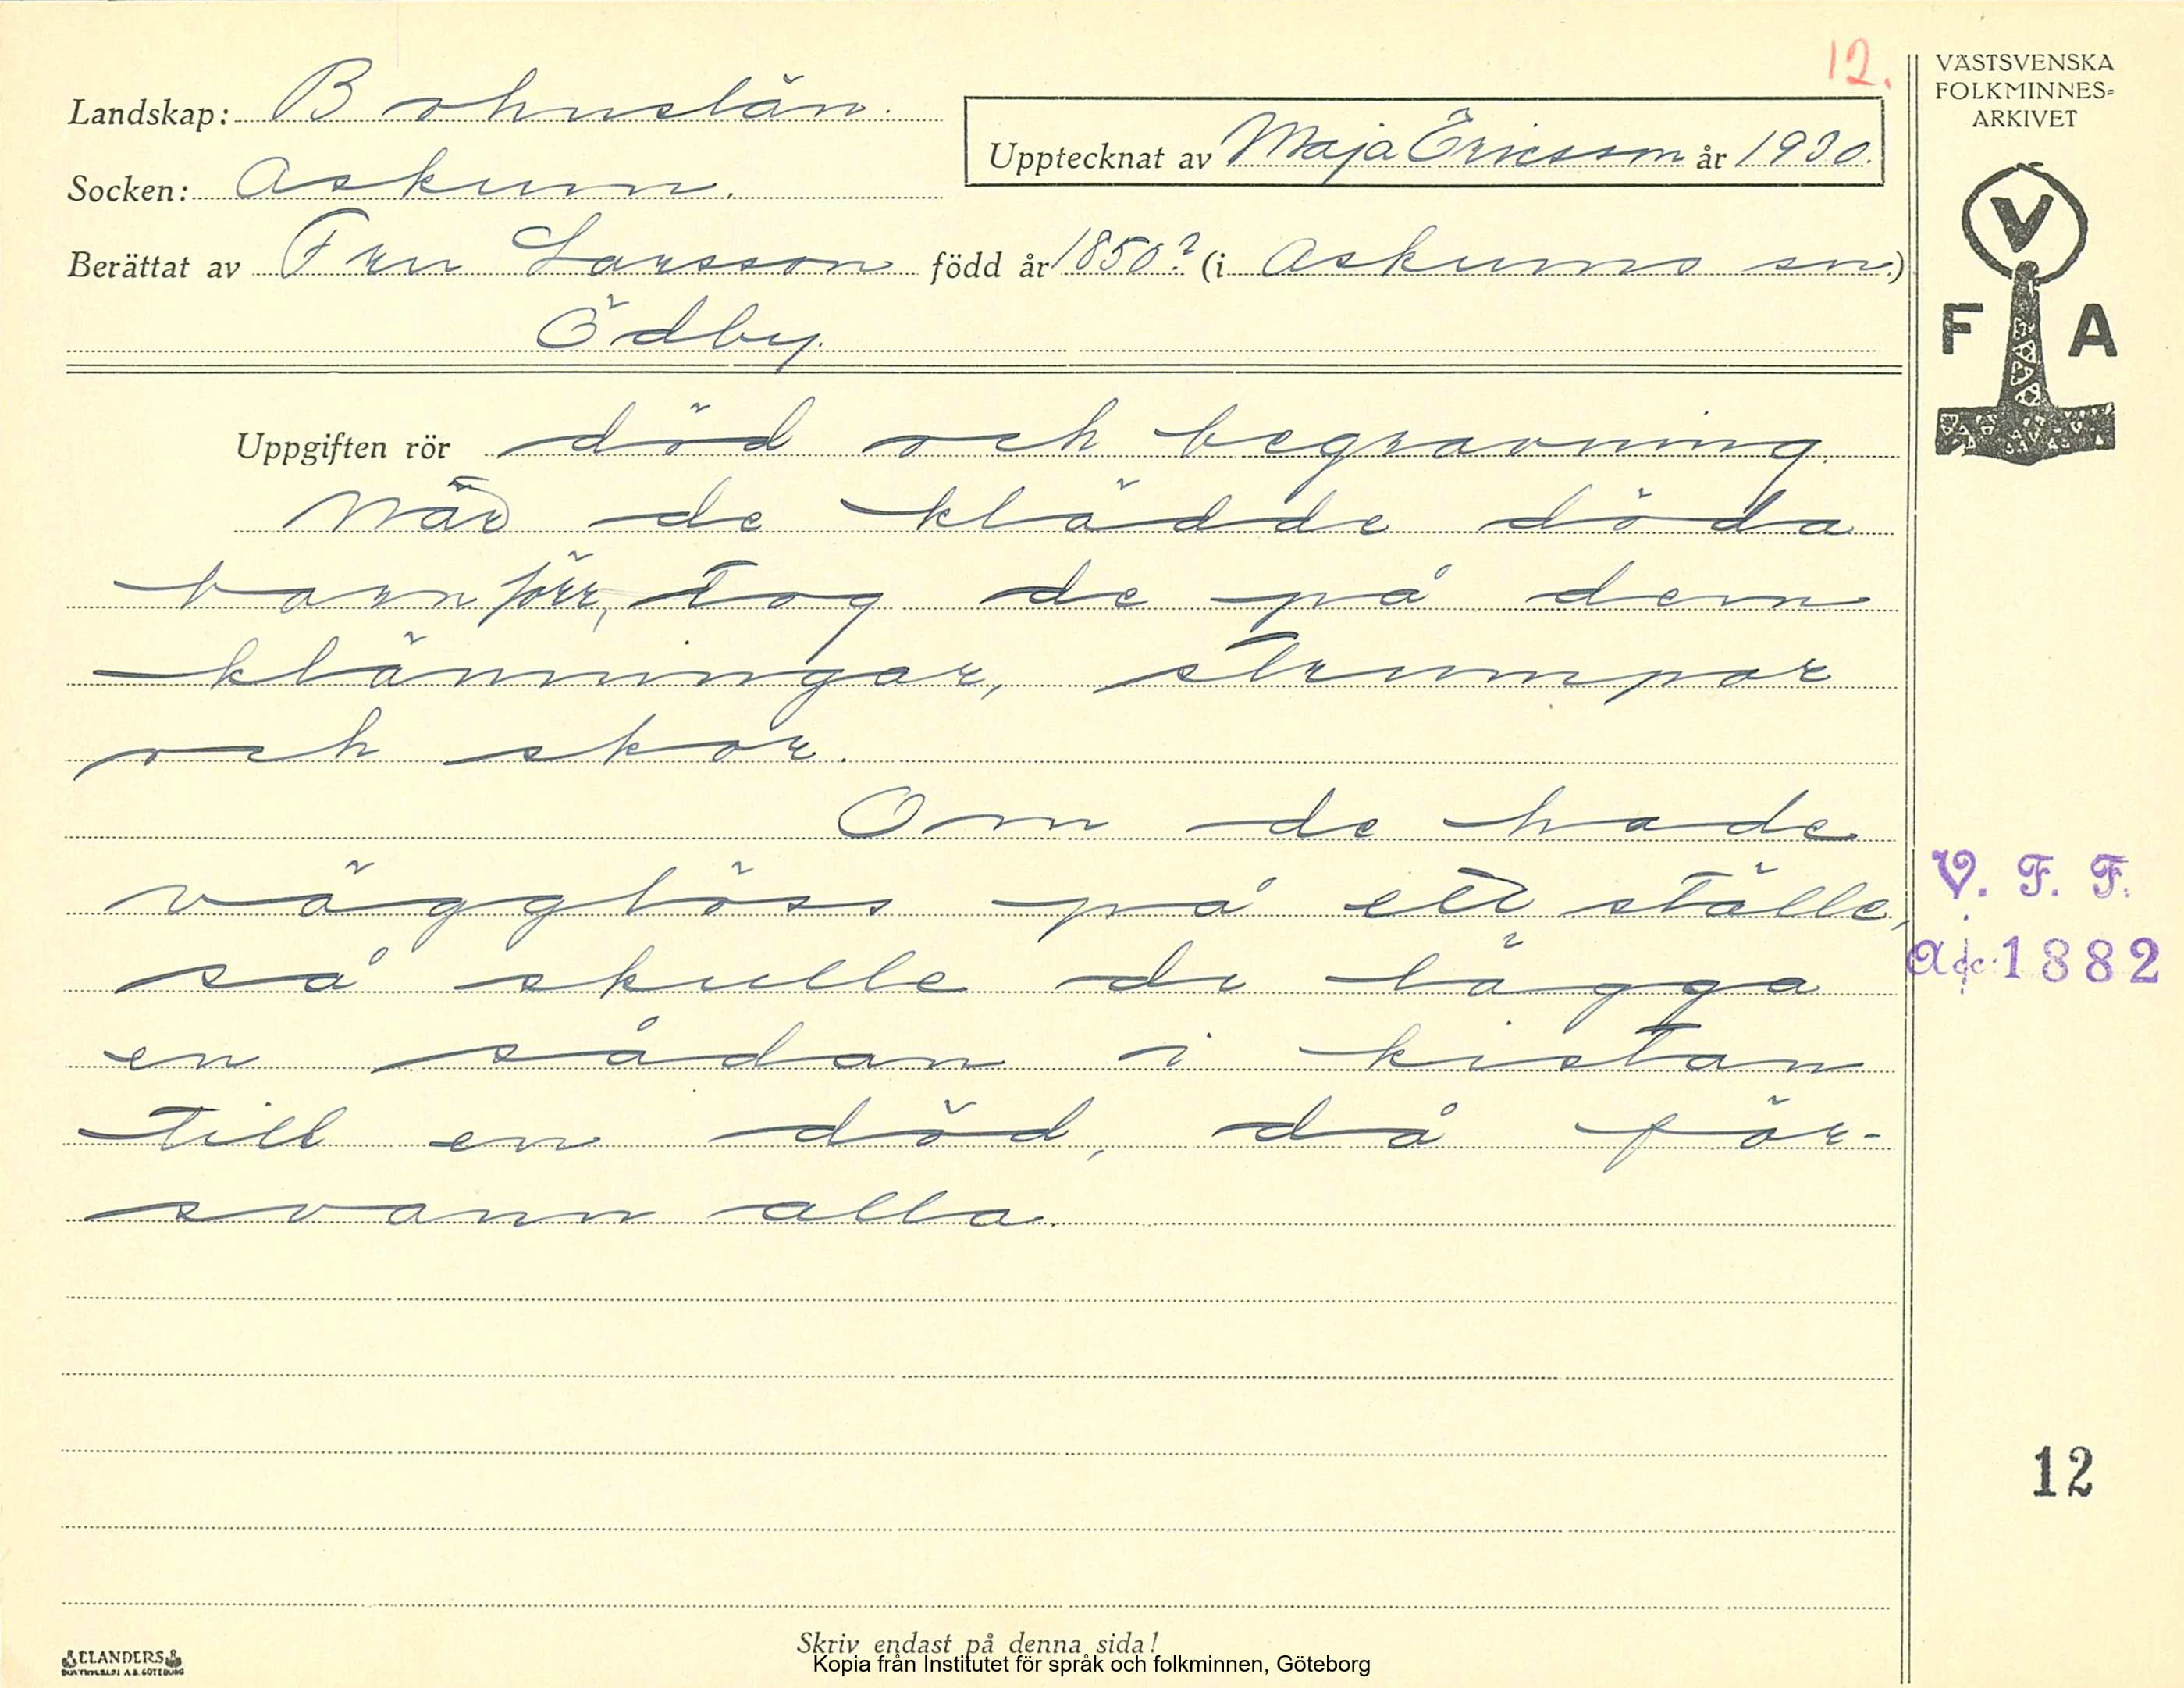 12.
Landskap: Bohuslän.
Upptecknat av Maja Ericsson år 1930.
Socken: Askum.
Berättat av Fru Larsson född år 1850? (i Askums sn.)
Ödby.
VÄSTSVENSKA
FOLKMINNES-
ARKIVET
V
F A
Uppgiften rör död och begravning.
När de klädde döda
barn förr, tog de på dem
klänningar, strumpor
och skor.
Om de hade
vägglöss på ett ställe,
så skulle de lägga
en sådan i kistan
till en död, då för-
svann alla.
V. F. F.
Acc. 1882
12
Skriv endast på denna sida!
ELANDERS
BOKTRYCKERI A.B. GÖTEBORG
Kopia från Institutet för språk och folkminnen, Göteborg